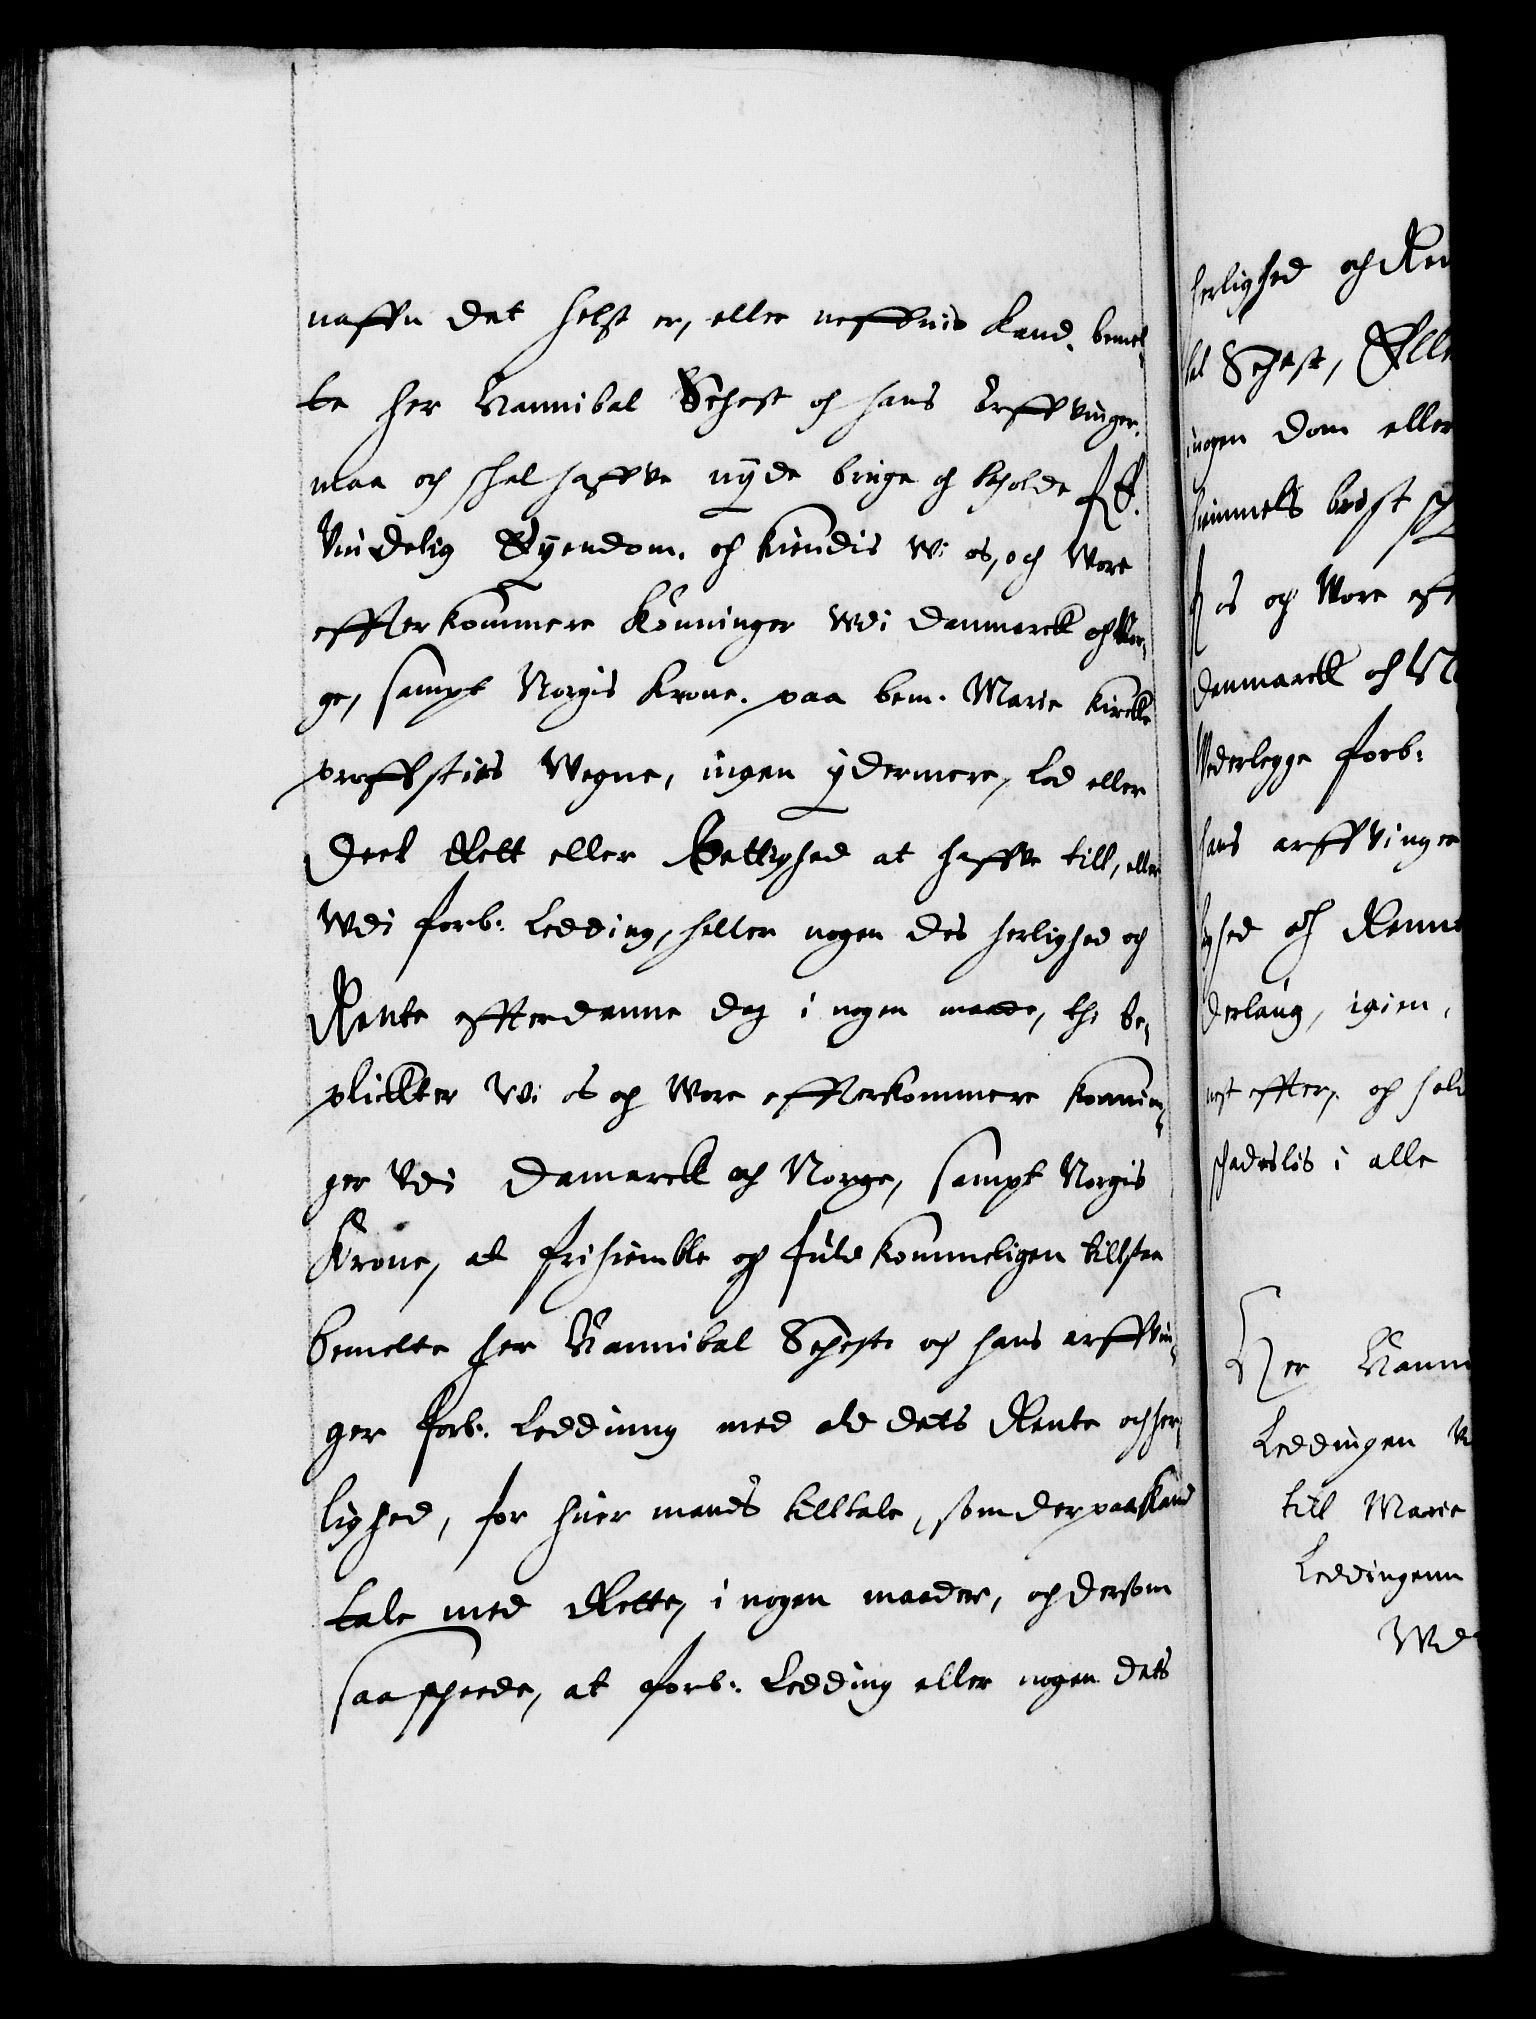 naffn det helst er, eller neffnis kand, bemel-
te her Hannibal Sehest och hans Arffvinger,
maa och schal haffve nyde bruge och beholde
Vindelig Eyendom, och kiendis Wi os, och Wore
effterkommere Konninger Wdi Danmarck och Nor-
ge, sampt Norgis Krone, paa bem: Marie kircke
proffsties Wegne, ingen ydermere, lod eller
Deel Rett eller Rettighed at haffve till, eller
Wdi forb: Ledding, heller nogen des herlighed och
Rente effter denne dag i nogen maade, thi be-
plickter Wi os og Wore effterkommere konnin-
ger Vdi Damarck och Norge, sampt Norgis
Krone, at frihiemble og fuldkommeligen tillstaa
bemelte her Hannibal Seheste och hans arffvin-
ger forb: Leddinng med ald dets Rente och her-
lighed, for huer mands tilltale, som der paa kand
tale med Rette, i nogen maader, och dersom
saa scheede, at forb: Ledding eller nogen dets
herlighed och Ren
bal Sehest, Elle
nogen dom eller
himmels brøst
os og Wore eff
Danmarck och N
Wederlegge forb:
hans arffvinger
lighed och Renn
derlaug, igien,
nest effter, og hold
schadesløs i alle
Her Hann
Leddingen
till Marie
Leddingenn
Wd